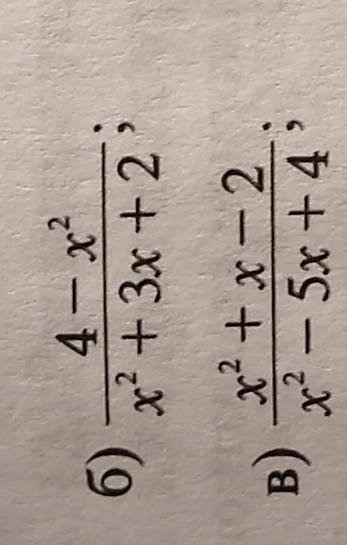 б) (4 − x²) / (x² + 3x + 2);
в) (x² + x − 2) / (x² − 5x + 4);